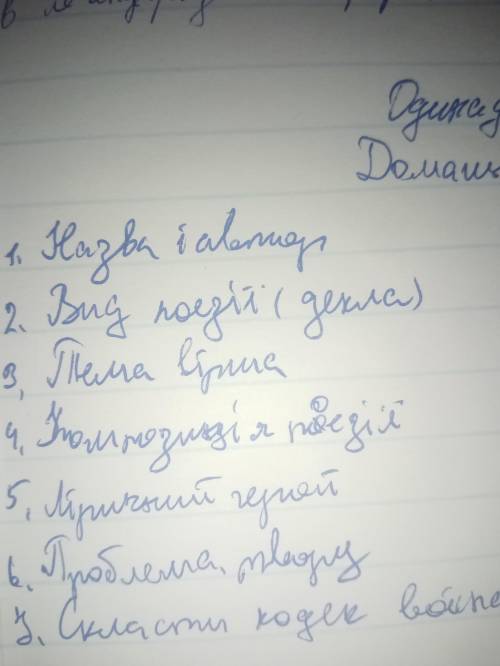 Одинад
Домашн
1. Назва і автор
2. Вид поезії (декла)
3. Тема вірша
4. Композиція поезії
5. Ліричний герой
6. Проблема твору
7. Скласти кодек воїна